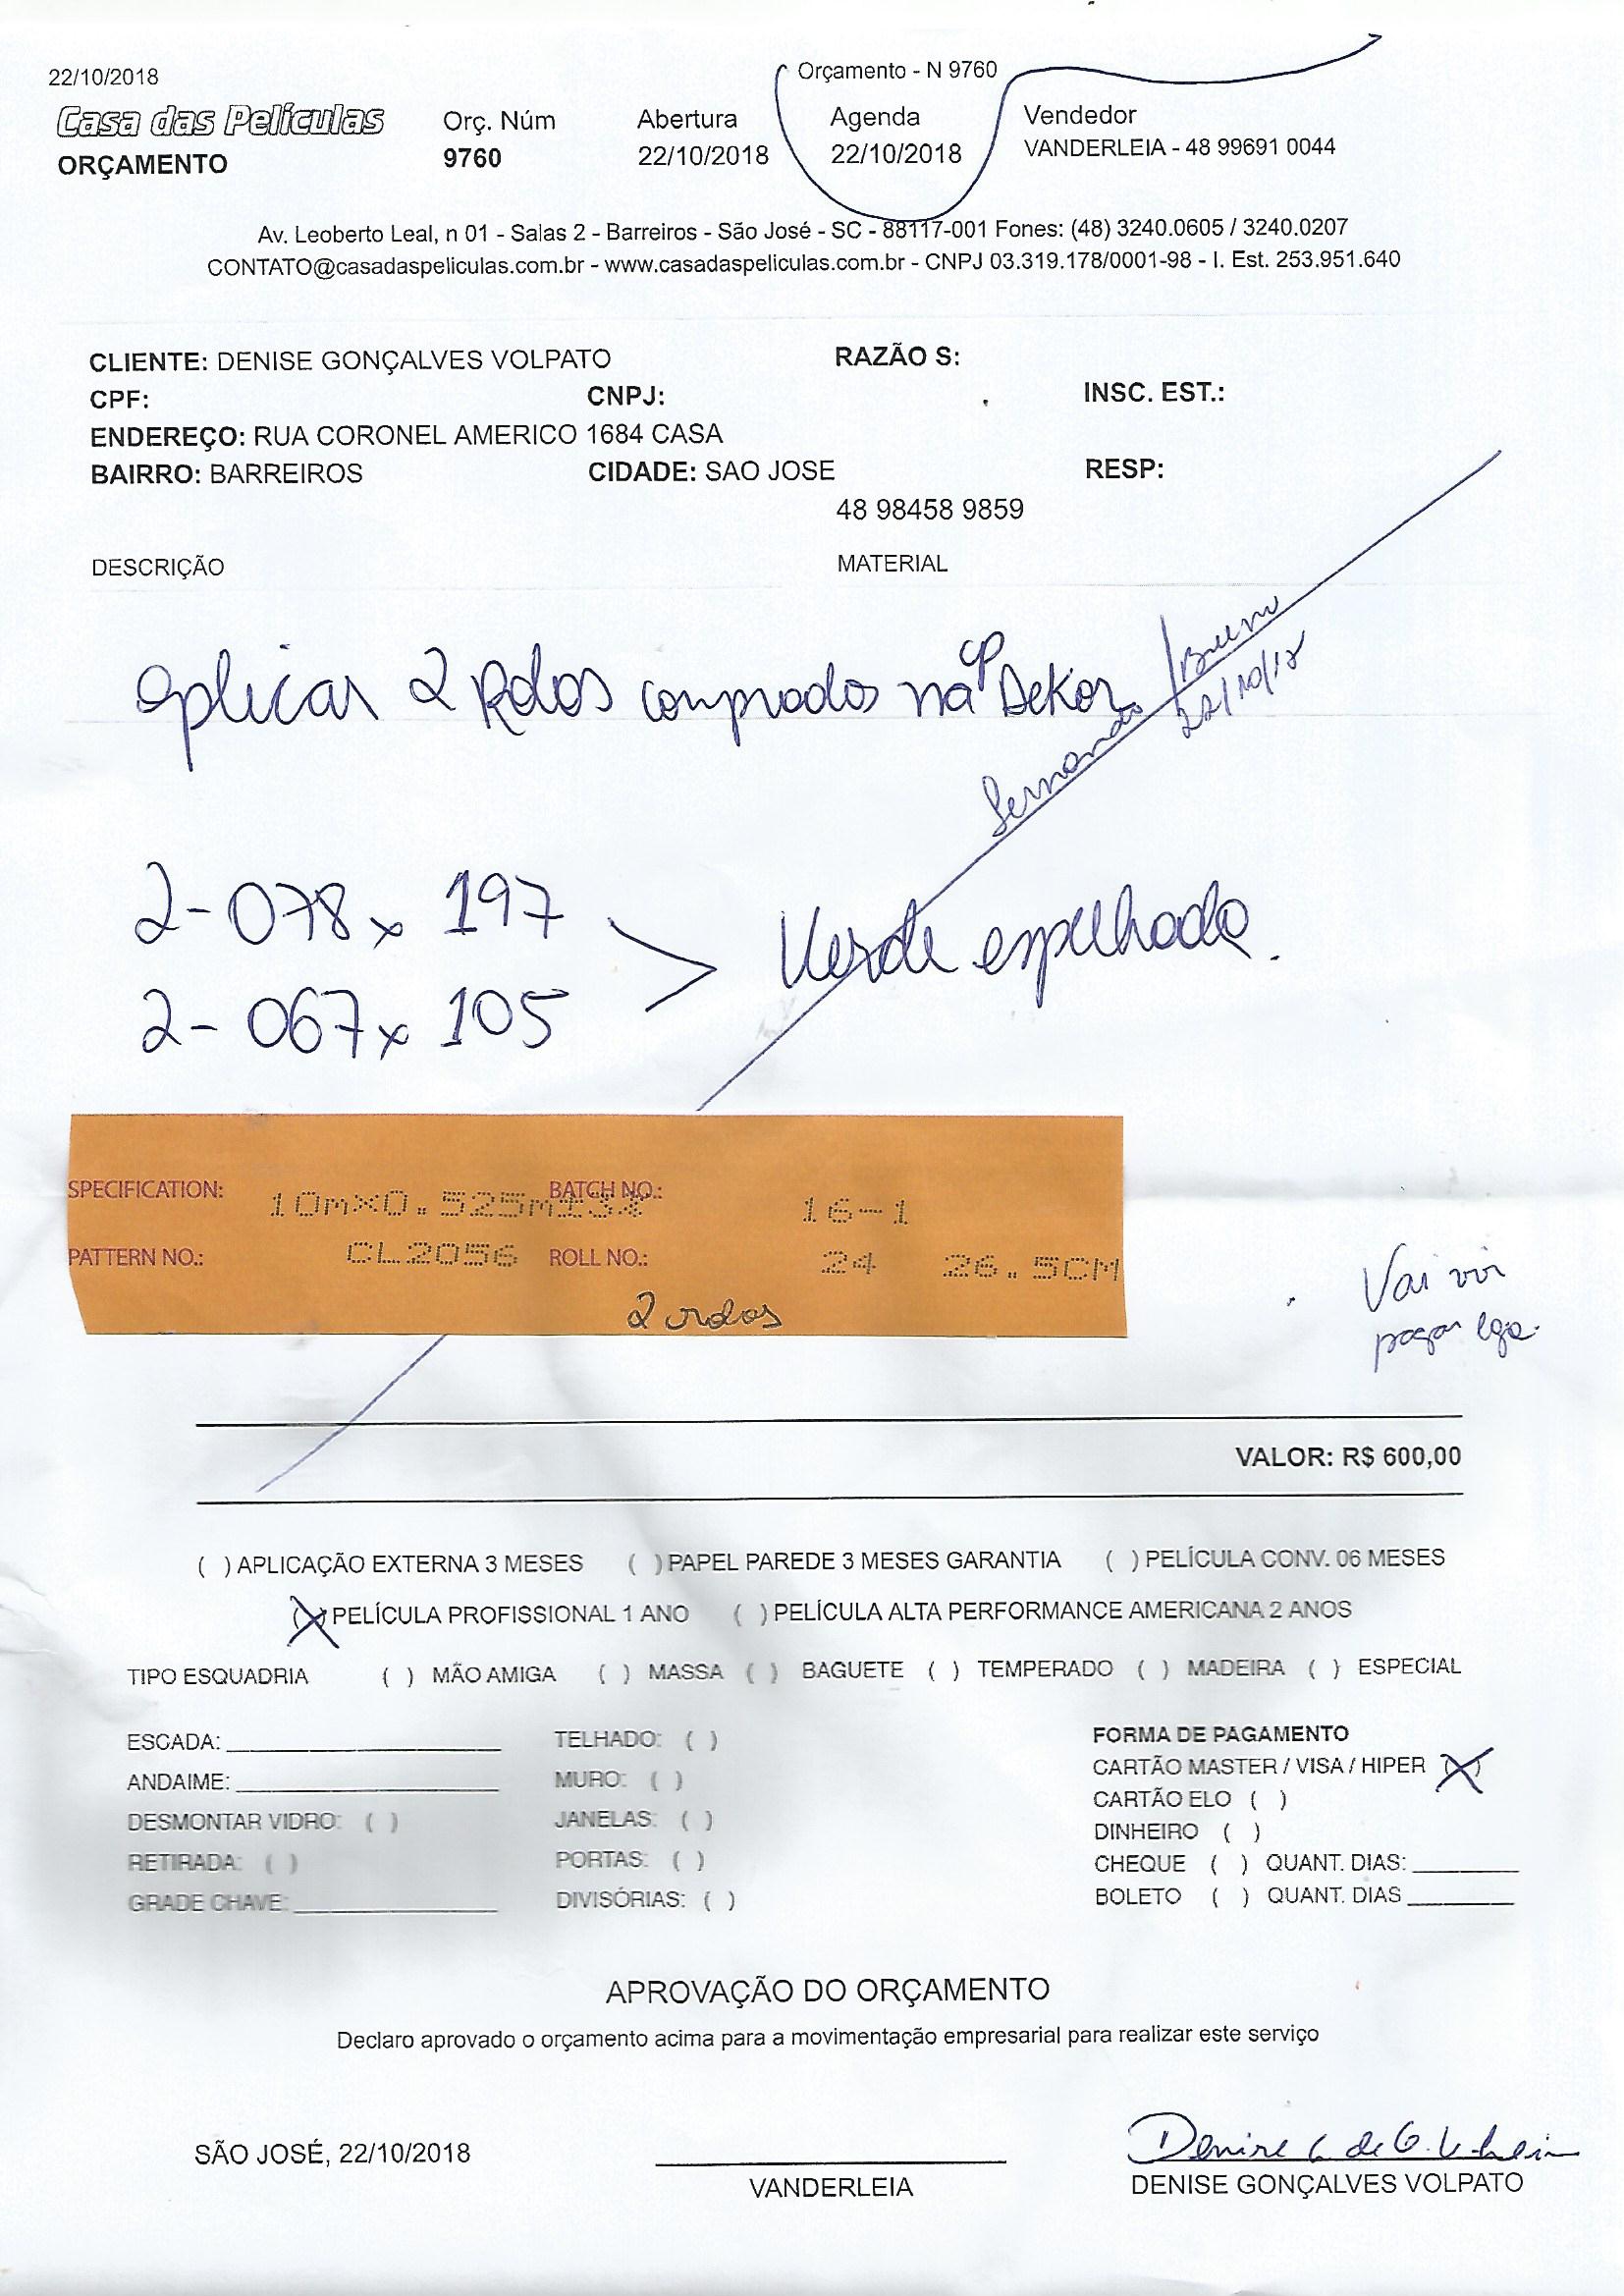 22/10/2018
Orçamento - N 9760
Casa das Películas
ORÇAMENTO
Orç. Núm
9760
Abertura
22/10/2018
Agenda
22/10/2018
Vendedor
VANDERLEIA - 48 99691 0044
Av. Leoberto Leal, n 01 - Salas 2 - Barreiros - São José - SC - 88117-001 Fones: (48) 3240.0605 / 3240.0207
CONTATO@casadaspeliculas.com.br - www.casadaspeliculas.com.br - CNPJ 03.319.178/0001-98 - I. Est. 253.951.640
CLIENTE: DENISE GONÇALVES VOLPATO RAZÃO S:
CPF: CNPJ: INSC. EST.:
ENDEREÇO: RUA CORONEL AMERICO 1684 CASA
BAIRRO: BARREIROS CIDADE: SAO JOSE RESP:
48 98458 9859
DESCRIÇÃO MATERIAL
aplicar 2 Rolos comprados na Dekor
Fernando / Bruno
22/10/18
2- 078 x 197
2- 067 x 105
Verde espelhado.
SPECIFICATION: 10m×0.525m±3% BATCH NO.: 16-1
PATTERN NO.: CL2056 ROLL NO.: 24 26.5CM
2 rolos
Vai vir
pagar loja.
VALOR: R$ 600,00
( ) APLICAÇÃO EXTERNA 3 MESES ( ) PAPEL PAREDE 3 MESES GARANTIA ( ) PELÍCULA CONV. 06 MESES
(X) PELÍCULA PROFISSIONAL 1 ANO ( ) PELÍCULA ALTA PERFORMANCE AMERICANA 2 ANOS
TIPO ESQUADRIA ( ) MÃO AMIGA ( ) MASSA ( ) BAGUETE ( ) TEMPERADO ( ) MADEIRA ( ) ESPECIAL
ESCADA: ____ TELHADO: ( ) FORMA DE PAGAMENTO
ANDAIME: ____ MURO: ( ) CARTÃO MASTER / VISA / HIPER (X)
DESMONTAR VIDRO: ( ) JANELAS: ( ) CARTÃO ELO ( )
RETIRADA: ( ) PORTAS: ( ) DINHEIRO ( )
GRADE CHAVE: ____ DIVISÓRIAS: ( ) CHEQUE ( ) QUANT. DIAS: ____
BOLETO ( ) QUANT. DIAS ____
APROVAÇÃO DO ORÇAMENTO
Declaro aprovado o orçamento acima para a movimentação empresarial para realizar este serviço
SÃO JOSÉ, 22/10/2018
VANDERLEIA
Denise
DENISE GONÇALVES VOLPATO